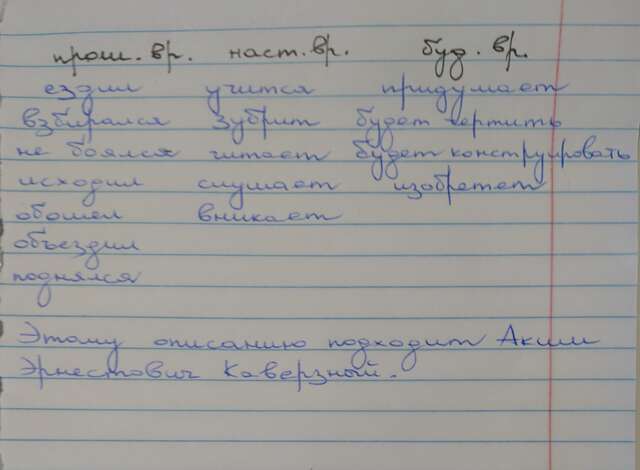 прош. вр. наст. вр. буд. вр.
ездил учится придумает
взбирался зубрит будет чертить
не боялся читает будет конструировать
исходил слушает изобретет
обошел вникает
объездил
поднялся
Этому описанию подходит Аким
Эрнестович Каверзный.